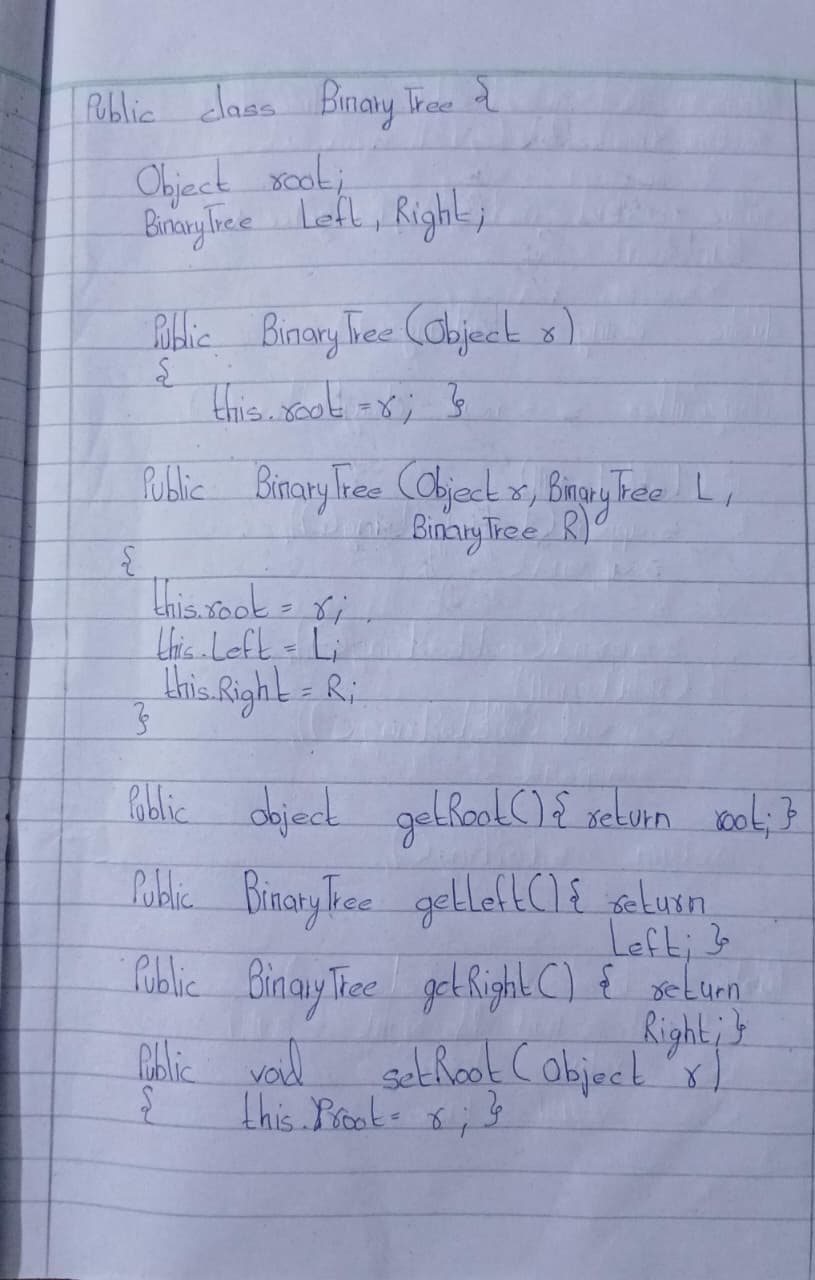 Public class Binary Tree {
Object root;
BinaryTree Left, Right;
Public BinaryTree (Object r)
{
this.root = r; }
Public BinaryTree (Object r, BinaryTree L,
BinaryTree R)
{
this.root = r;
this.Left = L;
this.Right = R;
}
Public object getRoot() { return root; }
Public BinaryTree getLeft() { return
Left; }
Public BinaryTree getRight() { return
Right; }
Public void setRoot (Object r)
{ this. = r; }